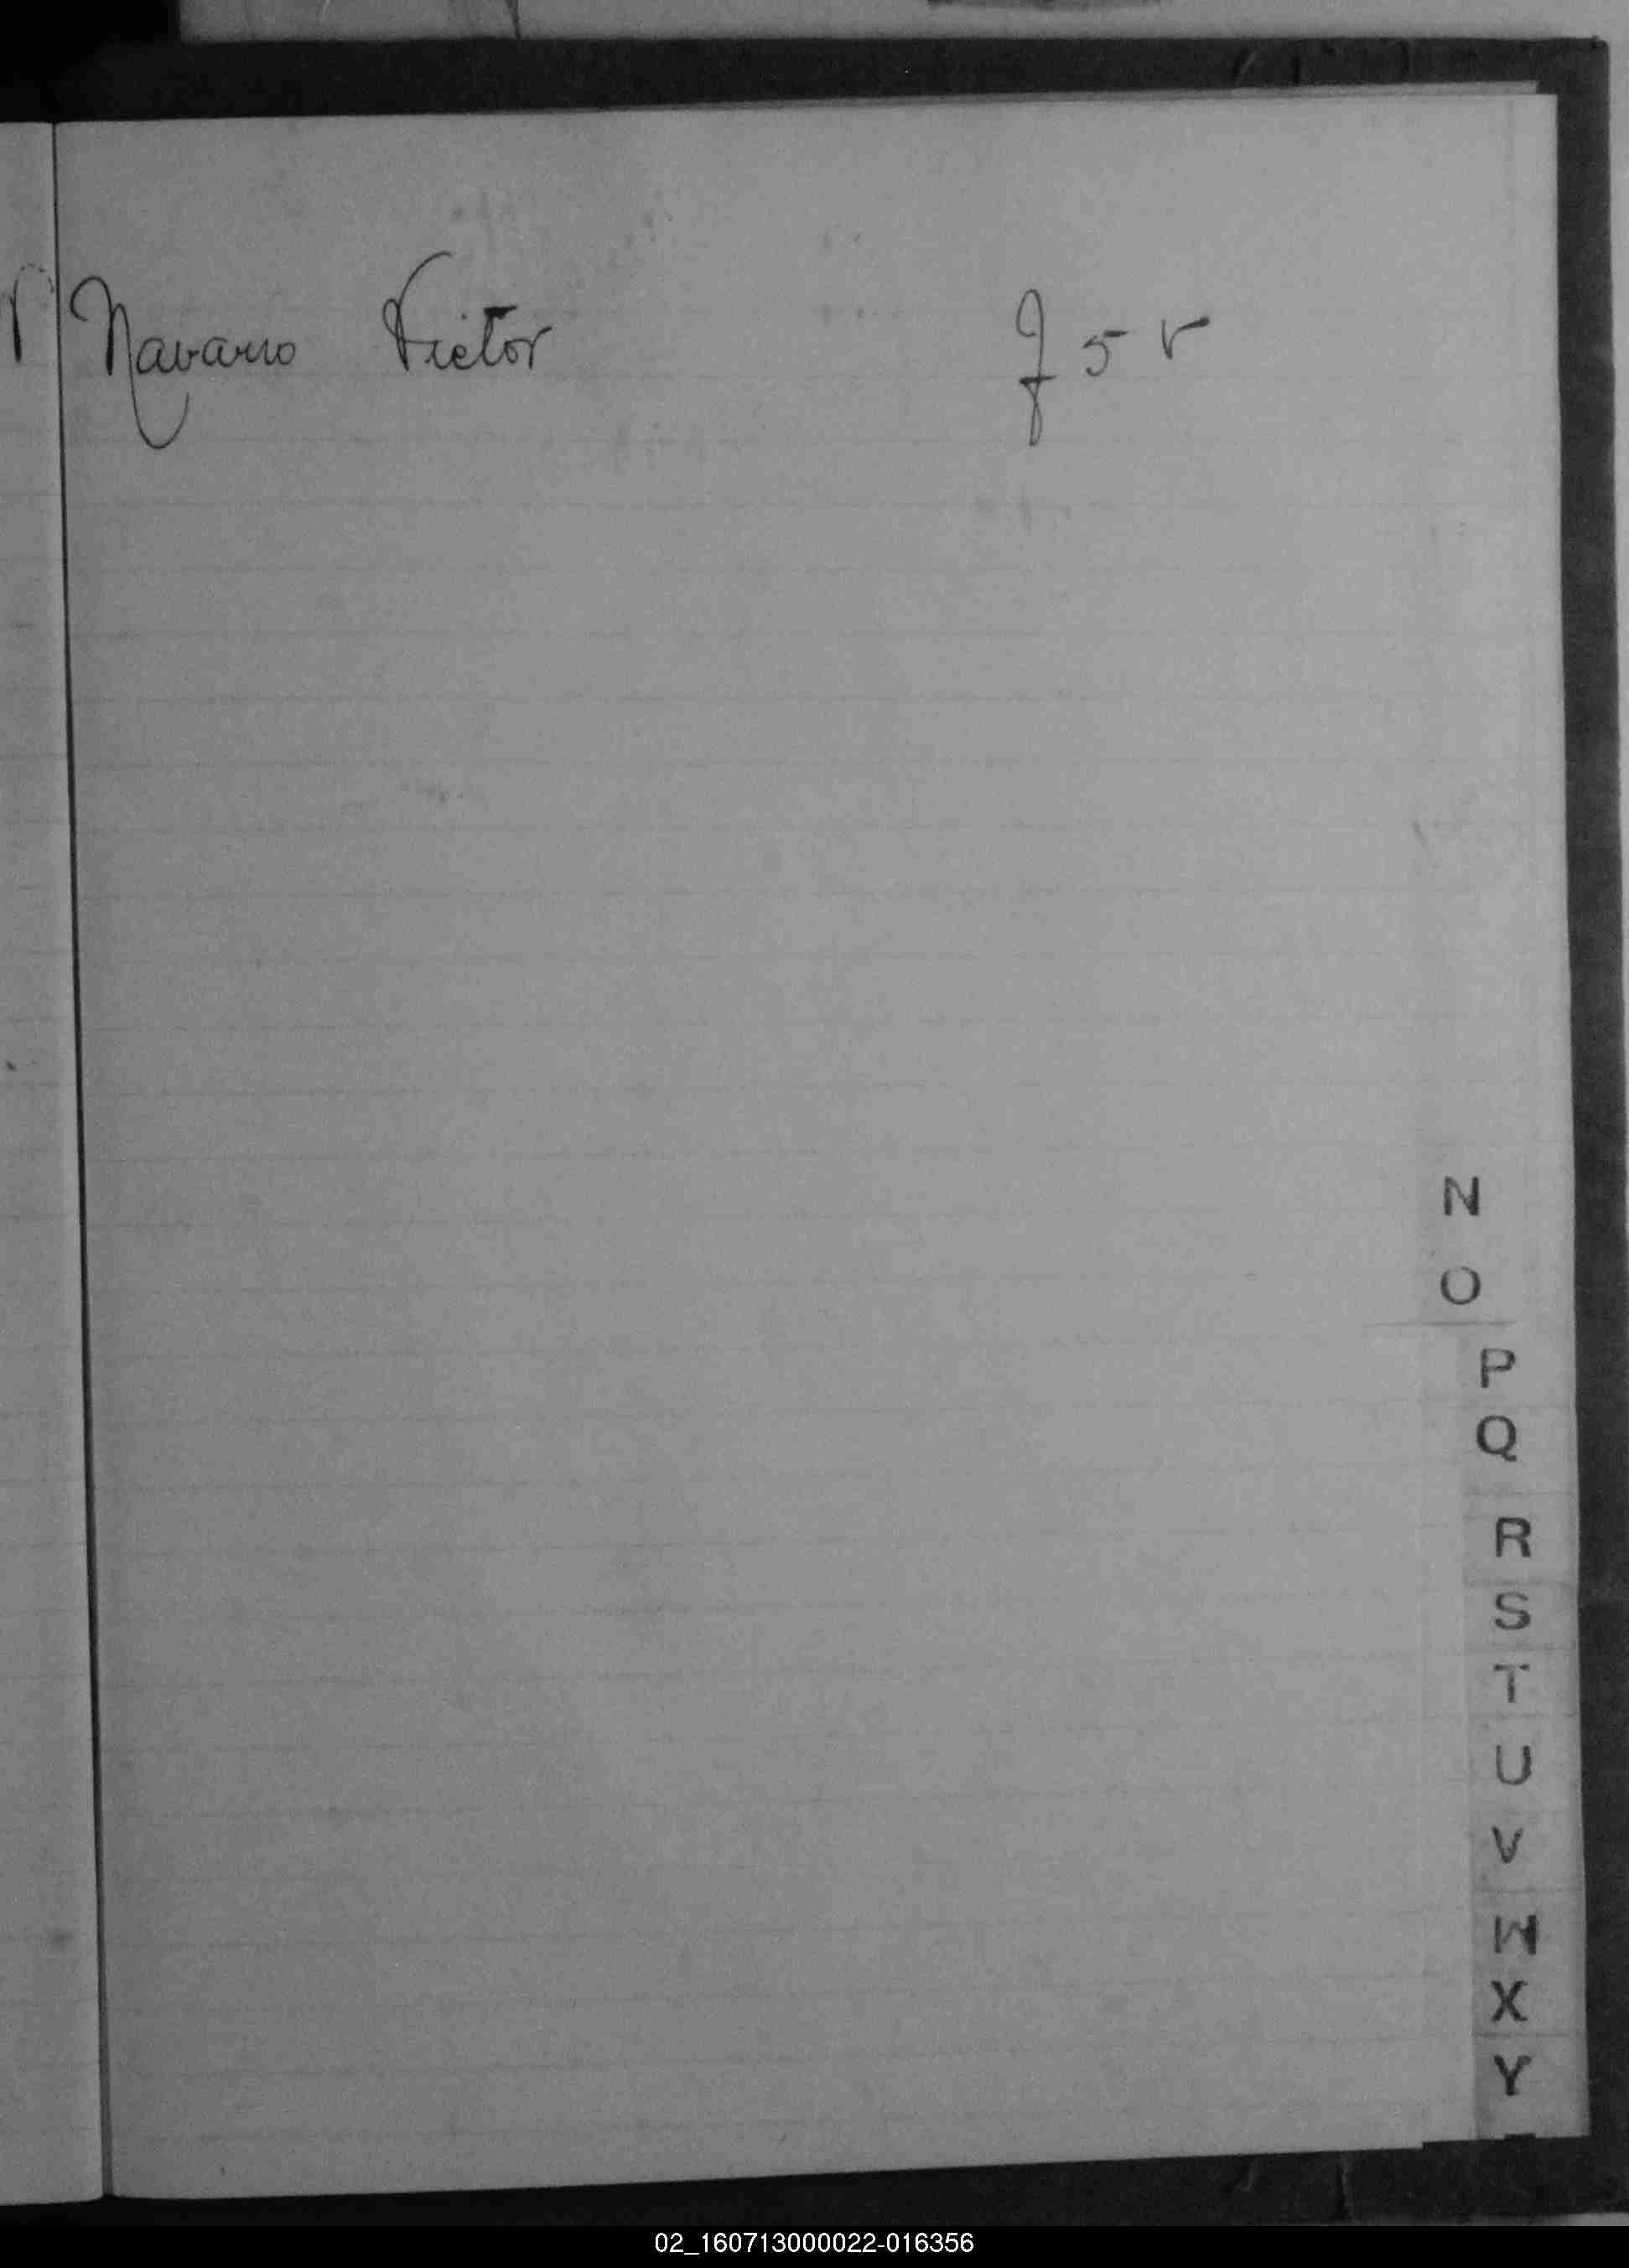 Navarro Victor f 5 v
N
O
P
Q
R
S
T
U
V
W
X
Y
02_160713000022-016356